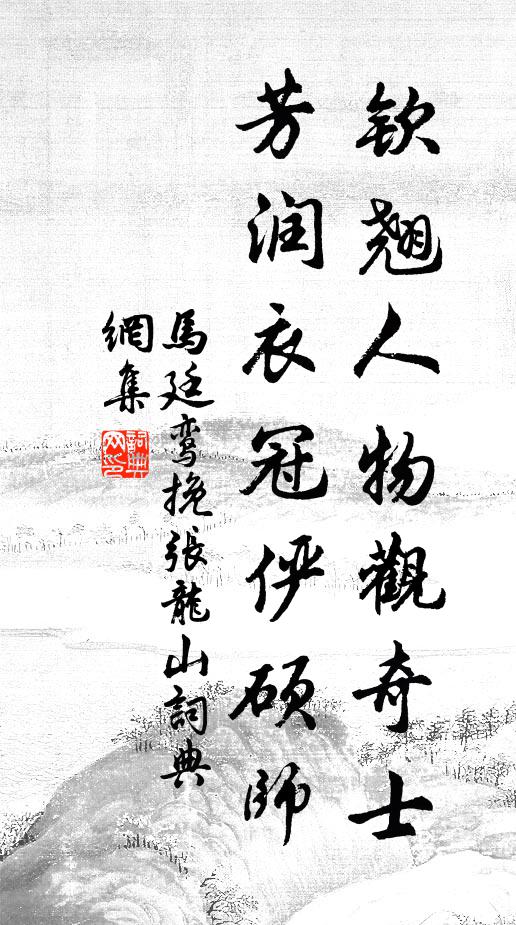 钦翘人物觀奇士
芳润衣冠俨硕師
馬廷鸾挽張龍山詞典
網集
詞典網印